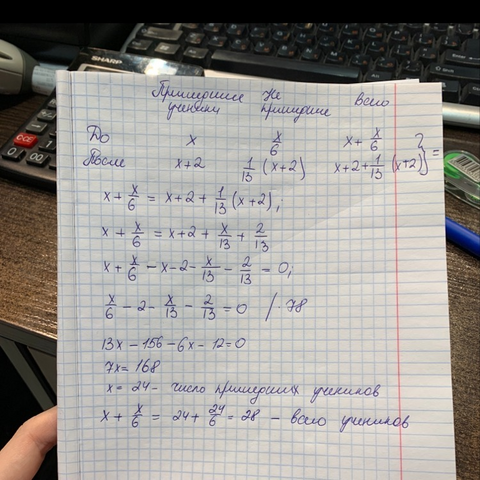 SHARP
Пришедшие Не Всего
ученики пришедшие
До x x/6 x + x/6
После x+2 1/13 (x+2) x+2+1/13 (x+2) } =
x + x/6 = x+2 + 1/13 (x+2);
x + x/6 = x+2 + x/13 + 2/13
x + x/6 - x - 2 - x/13 - 2/13 = 0;
x/6 - 2 - x/13 - 2/13 = 0 / · 78
13x - 156 - 6x - 12 = 0
7x = 168
x = 24 - число пришедших учеников
x + x/6 = 24 + 24/6 = 28 - всего учеников